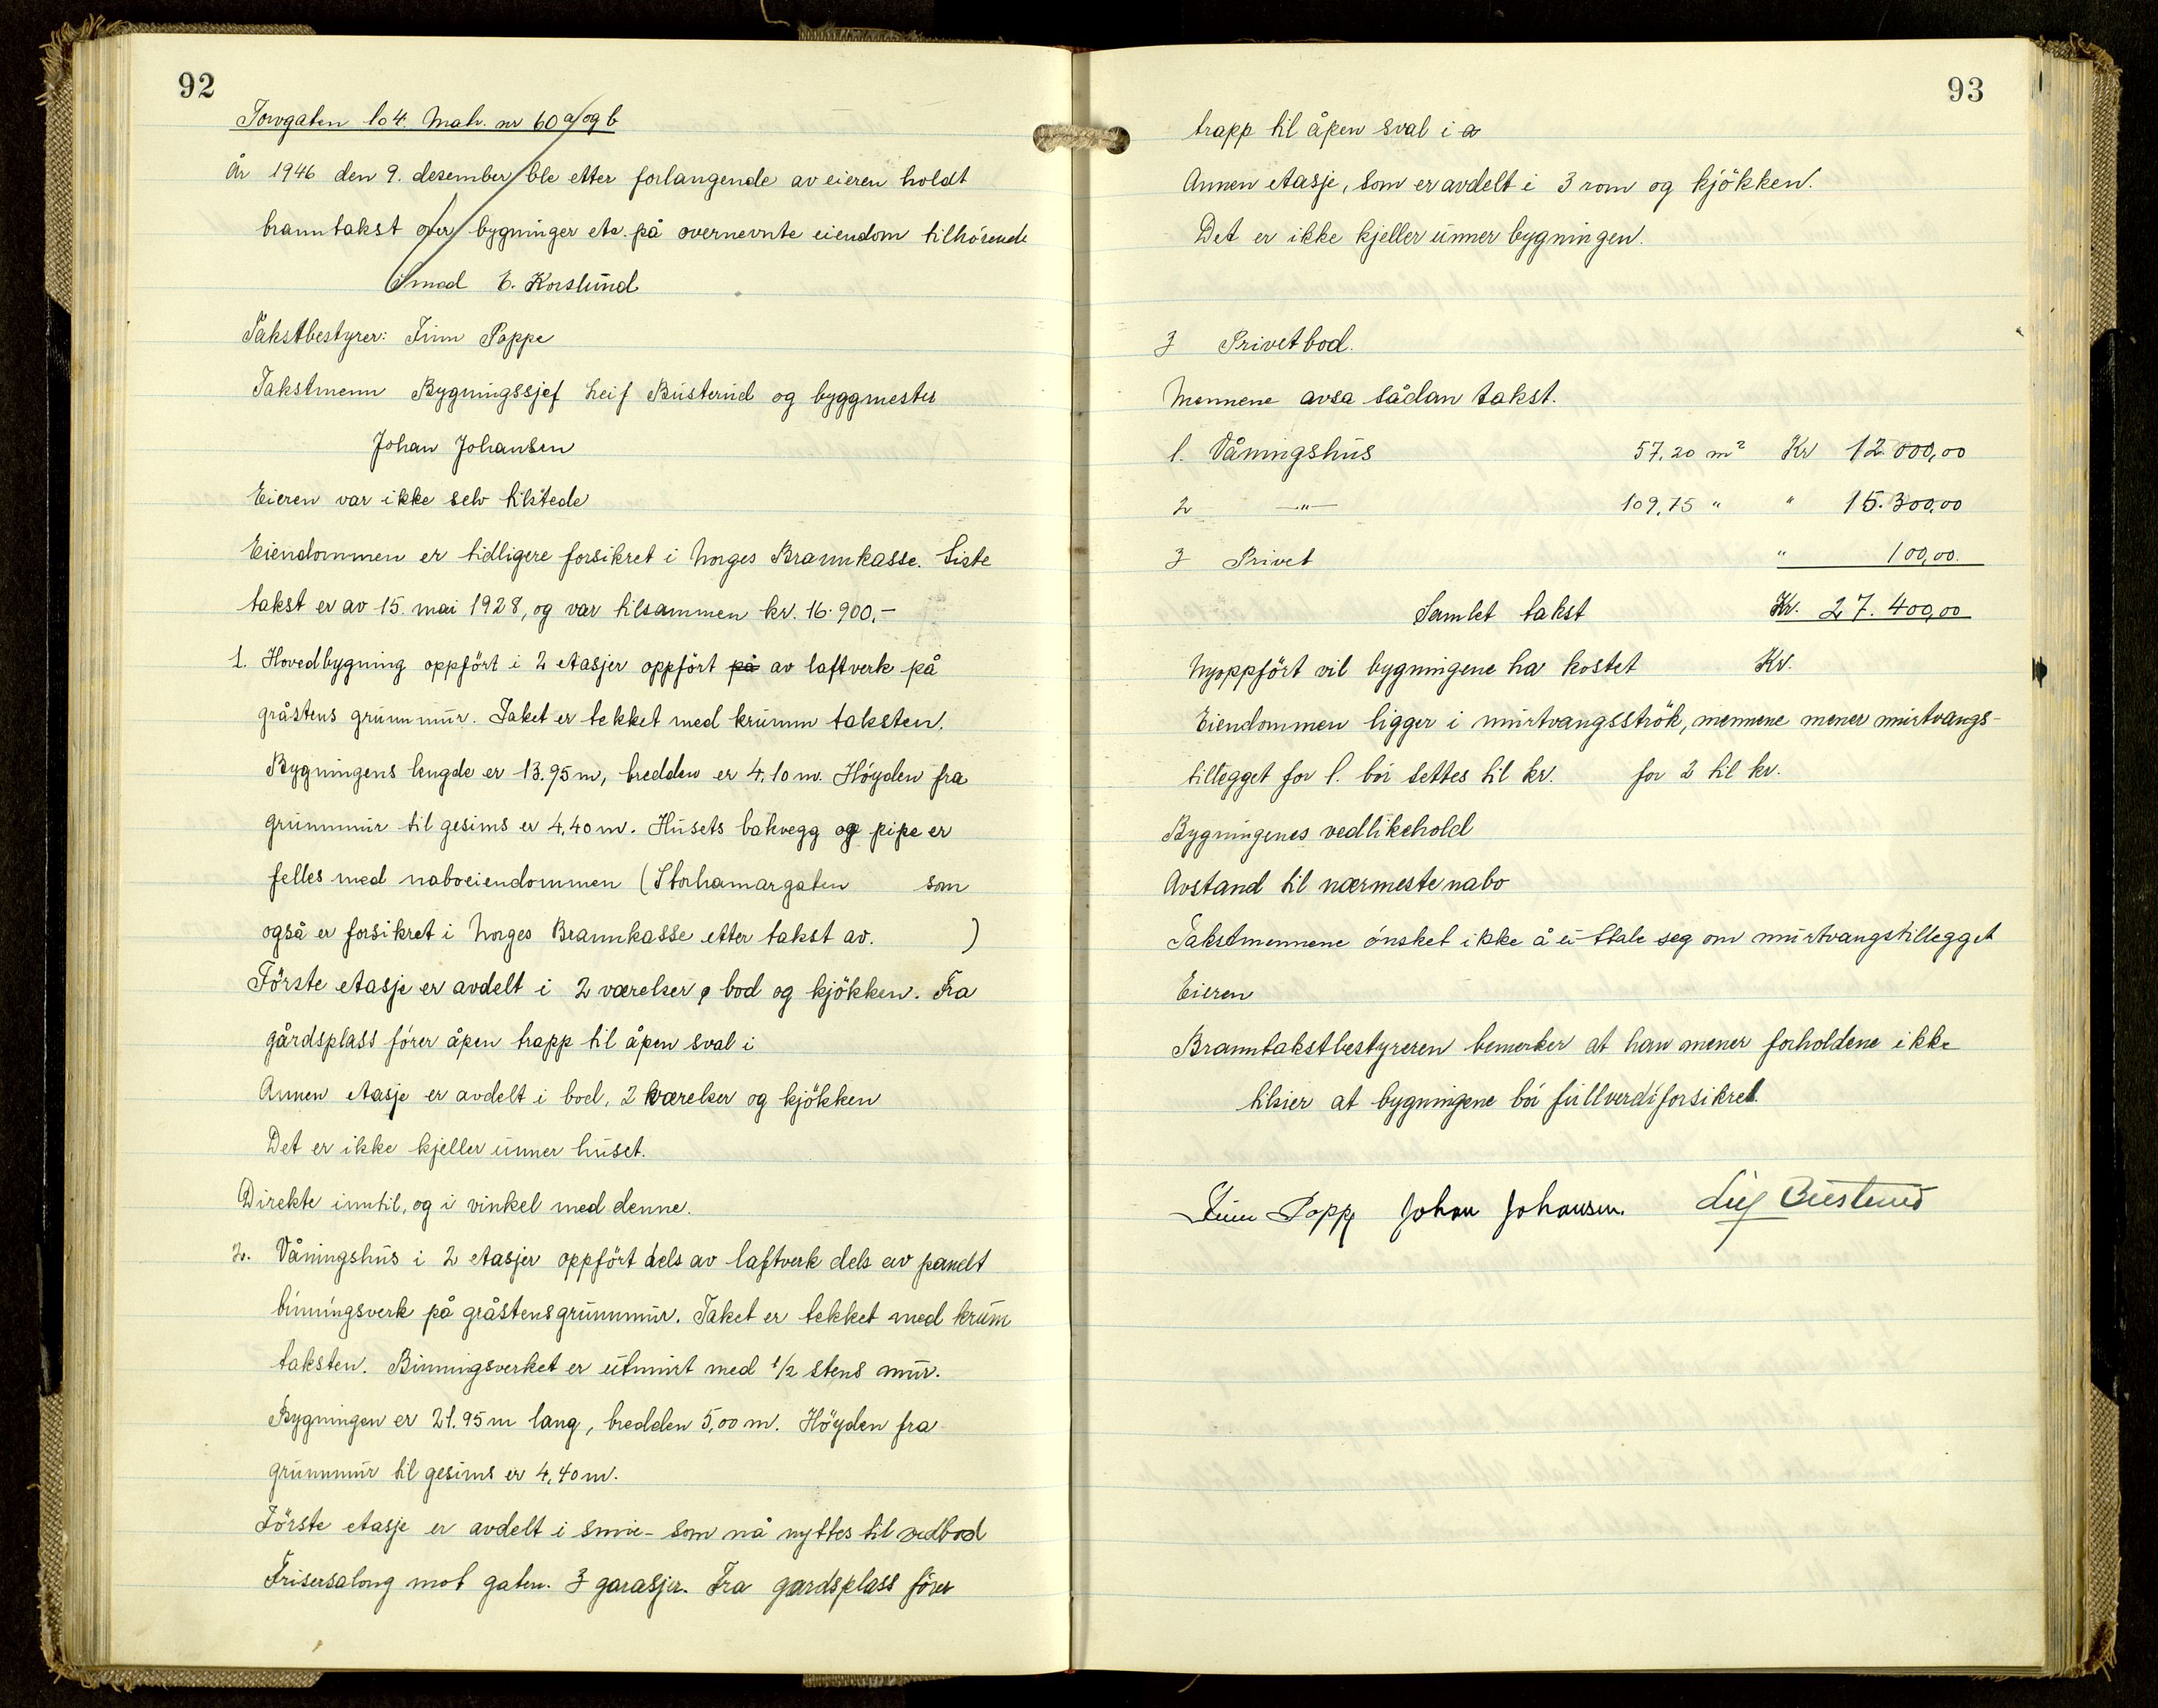 92
Torvgaten 104. Matr. nr 60 a og b
År 1946 den 9. desember ble etter forlangende av eieren holdt
branntakst over bygninger etc. på overnevnte eiendom tilhörende
Smed E. Korslund
Takstbestyrer: Finn Poppe
Takstmenn Bygningssjef Leif Busterud og byggmester
Johan Johansen
Eieren var ikke selv tilstede
Eiendommen er tidligere forsikret i Norges Brannkasse. Siste
takst er av 15. mai 1928, og var tilsammen kr. 16.900,-
1. Hovedbygning oppfört i 2 etasjer oppfört på av laftverk på
gråstens grunnmur. Taket er tekket med krumm taksten.
Bygningens lengde er 13.95 m, bredden er 4,10 m. Höyden fra
grunnmur til gesims er 4,40 m. Husets bakvegg og pipe er
felles med naboeiendommen (Storhamargaten som
også er forsikret i Norges Brannkasse etter takst av. )
Förste etasje er avdelt i 2 værelser, bod og kjökken. Fra
gårdsplass förer åpen trapp til åpen sval i
Annen etasje er avdelt i bod, 2 værelser og kjökken
Det er ikke kjeller unner huset.
Direkte inntil, og i vinkel med denne.
2. Våningshus i 2 etasjer oppfört dels av laftverk dels av panelt
binningsverk på gråstensgrunnmur. Taket er tekket med krum
taksten. Binningsverket er utmurt med 1/2 stens mur.
Bygningen er 21.95 m lang, bredden 5,00 m. Höyden fra
grunnmur til gesims er 4,40 m.
Förste etasje er avdelt i smie - som nå nyttes til vedbod
Frisersalong mot gaten. 3 garasjer. Fra gardsplass förer
93
trapp til åpen sval i a
Annen etasje, som er avdelt i 3 rom og kjökken.
Det er ikke kjeller unner bygningen.
3 Privetbod.
Mennene avsa sådan takst.
1. Våningshus 57,20 m² Kr 12.000,00
2 —"— 109,75 " " 15.300,00
3 Privet " 100,00.
Samlet takst Kr. 27.400,00
Nyoppfört vil bygningene ha kostet Kr.
Eiendommen ligger i murtvangsströk, mennene mener murtvangs-
tillegget for 1. bör settes til kr. for 2 til kr.
Bygningenes vedlikehold
Avstand til nærmeste nabo
Takstmennene önsket ikke å u-ttale seg om murtvangstillegget
Eieren
Branntakstbestyreren bemerker at han mener forholdene ikke
tilsier at bygningene bör fullverdiforsikret.
Finn Poppe Johan Johansen. Leif Busterud